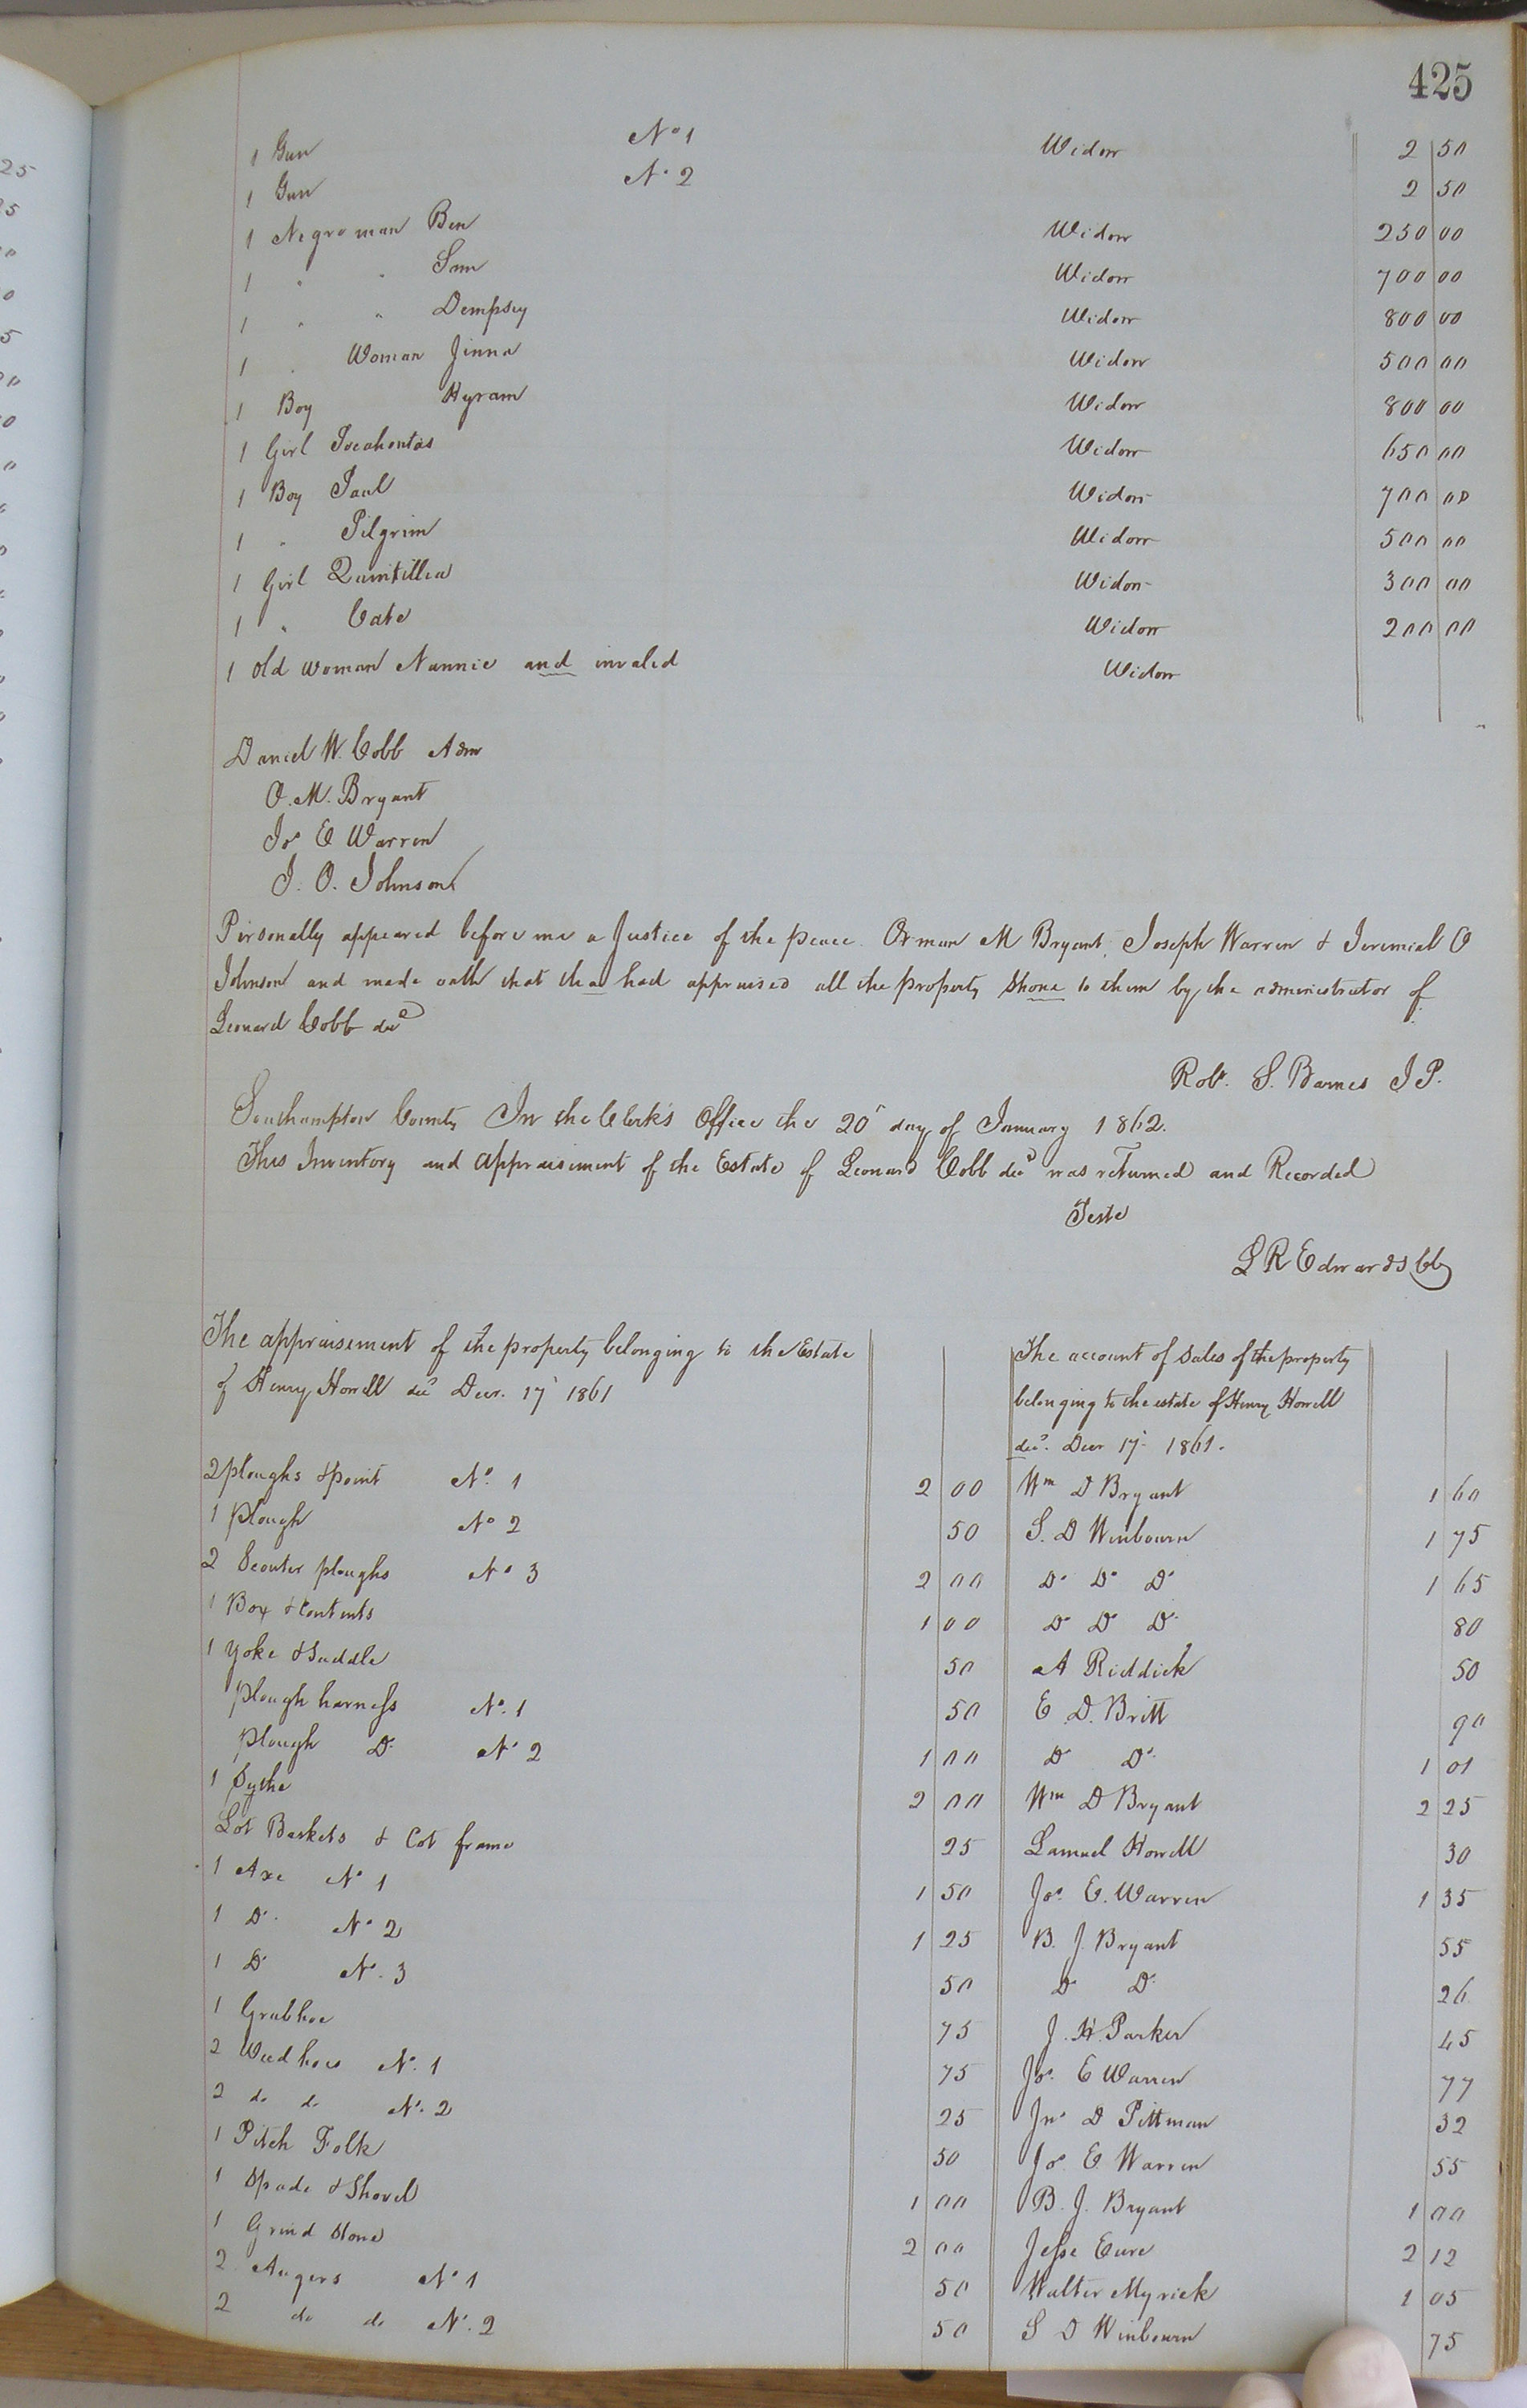 425
1 Gun No 1 Widow 2 50
1 Gun No 2 2 50
1 Negro man Ben Widow 250 00
1 " " Sam Widow 700 00
1 " " Dempsey Widow 800 00
1 " Woman Jinna Widow 500 00
1 Boy Hyram Widow 800 00
1 Girl Pocahontas Widow 650 00
1 Boy Paul Widow 700 00
1 " Pilgrim Widow 500 00
1 Girl Quintillia Widow 300 00
1 " Cate Widow 200 00
1 old woman Nannie and invalid Widow
Daniel W. Cobb Adm
O. M. Bryant
Jos E Warren
J. O. Johnson
Personally appeared before me a Justice of the peace Orman M Bryant, Joseph Warren & Jeremial O
Johnson and made oath that tha had appraised all the property Shone to them by the administrator of
Leonard Cobb decd
Robt. S. Barnes J P.
Southampton County In the Clerk's Office the 20' day of January 1862.
This Inventory and Appraisement of the Estate of Leonard Cobb decd was returned and Recorded
Teste
L R Edwards Clk
The appraisement of the property belonging to the Estate
of Henry Howell decd Decr. 17' 1861
The account of Sales of the property
belonging to the estate of Henry Howell
decd. Decr 17' 1861.
2 ploughs & point No. 1 2 00 Wm D Bryant 1 60
1 Plough No 2 50 S. D Winbourn 1 75
2 Scouter ploughs No 3 2 00 Do Do Do 1 65
1 Box & Contents 1 00 Do Do Do 80
1 Yoke & Saddle 50 A Riddick 50
Plough harness No. 1 50 E D. Britt 90
Plough Do No 2 1 00 Do Do 1 01
1 Sythe 2 00 Wm D Bryant 2 25
Lot Baskets & Cot frame 25 Lamuel Howell 30
1 Axe No 1 1 50 Jos. E. Warren 1 35
1 Do No 2 1 25 B. J. Bryant 55
1 Do No. 3 50 Do Do 26
1 Grubhoe 75 J. H. Parker 45
2 Weedhoes No. 1 75 Jos. E Warren 77
2 do do No. 2 25 Jno D Pittman 32
1 Pitch Folk 50 Jos. E. Warren 55
1 Spade & Shovel 1 00 B. J. Bryant 1 00
1 Grind Stone 2 00 Jesse Eure 2 12
2 Augers No 1 50 Walter Myrick 1 05
2 do do No. 2 50 S D Winbourn 75